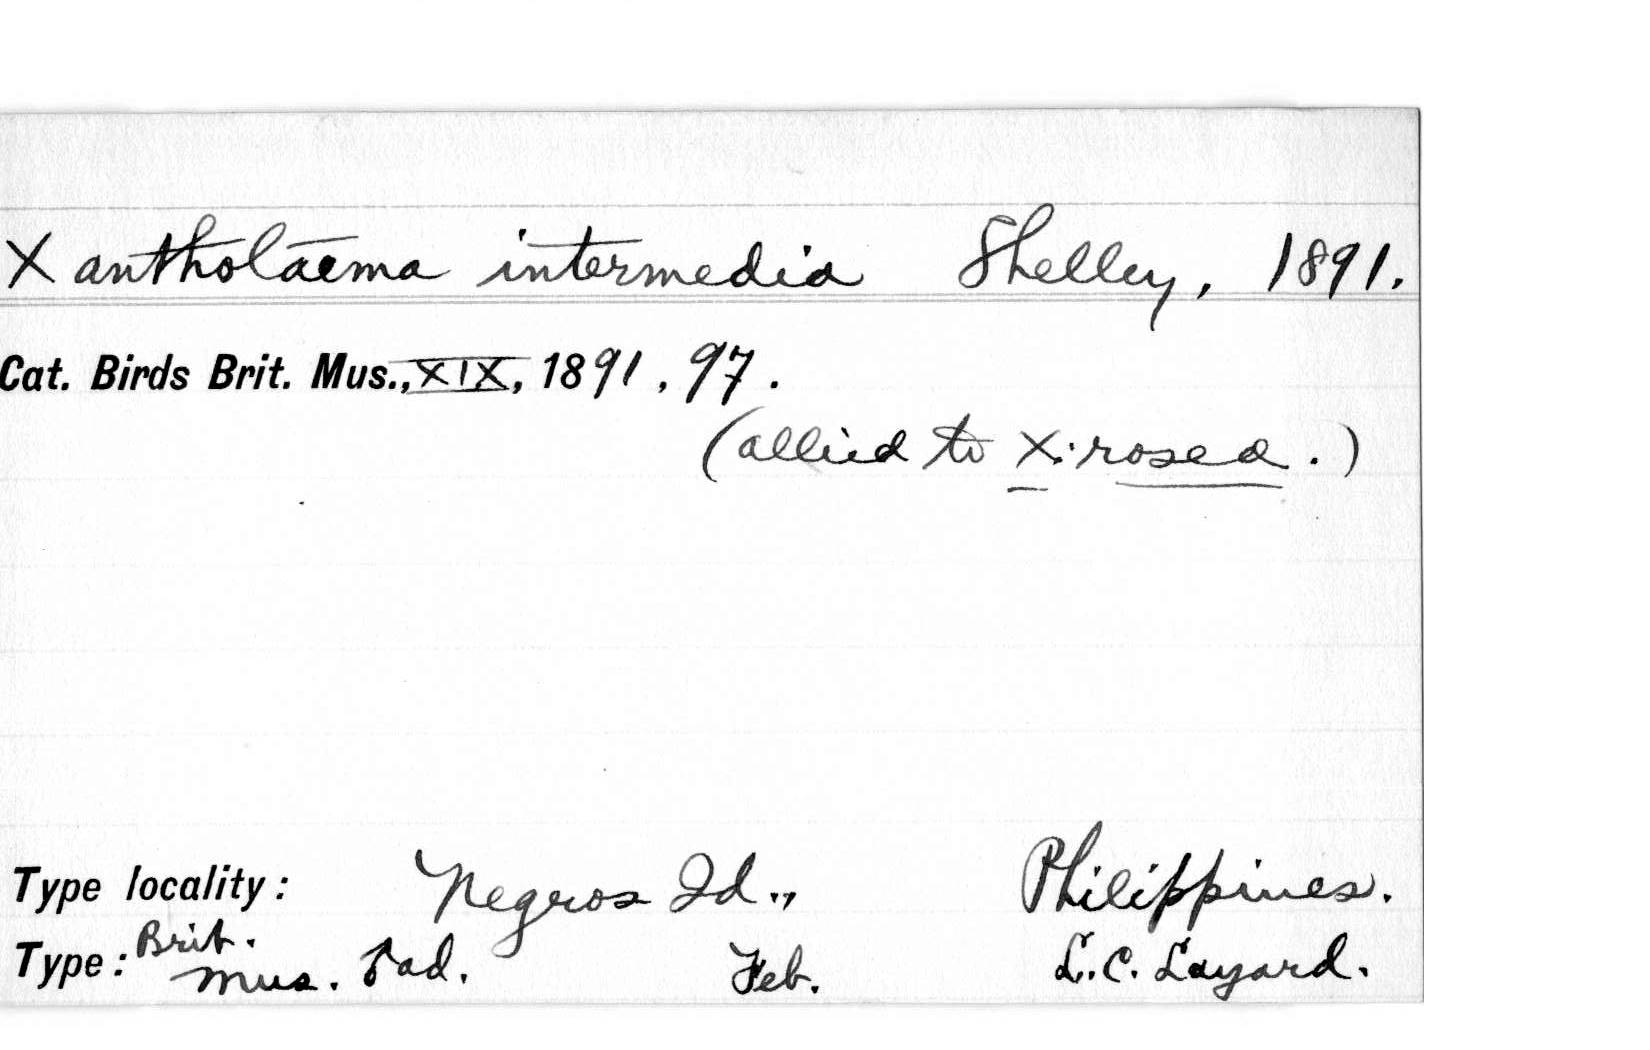 Xantholaema intermedia Shelley, 1891.
Cat. Birds Brit. Mus., XIX, 1891, 97.
(allied to X. rosea.)
Type locality: Negros Id., Philippines.
Type: Brit. Mus. ad. Feb. L. C. Layard.